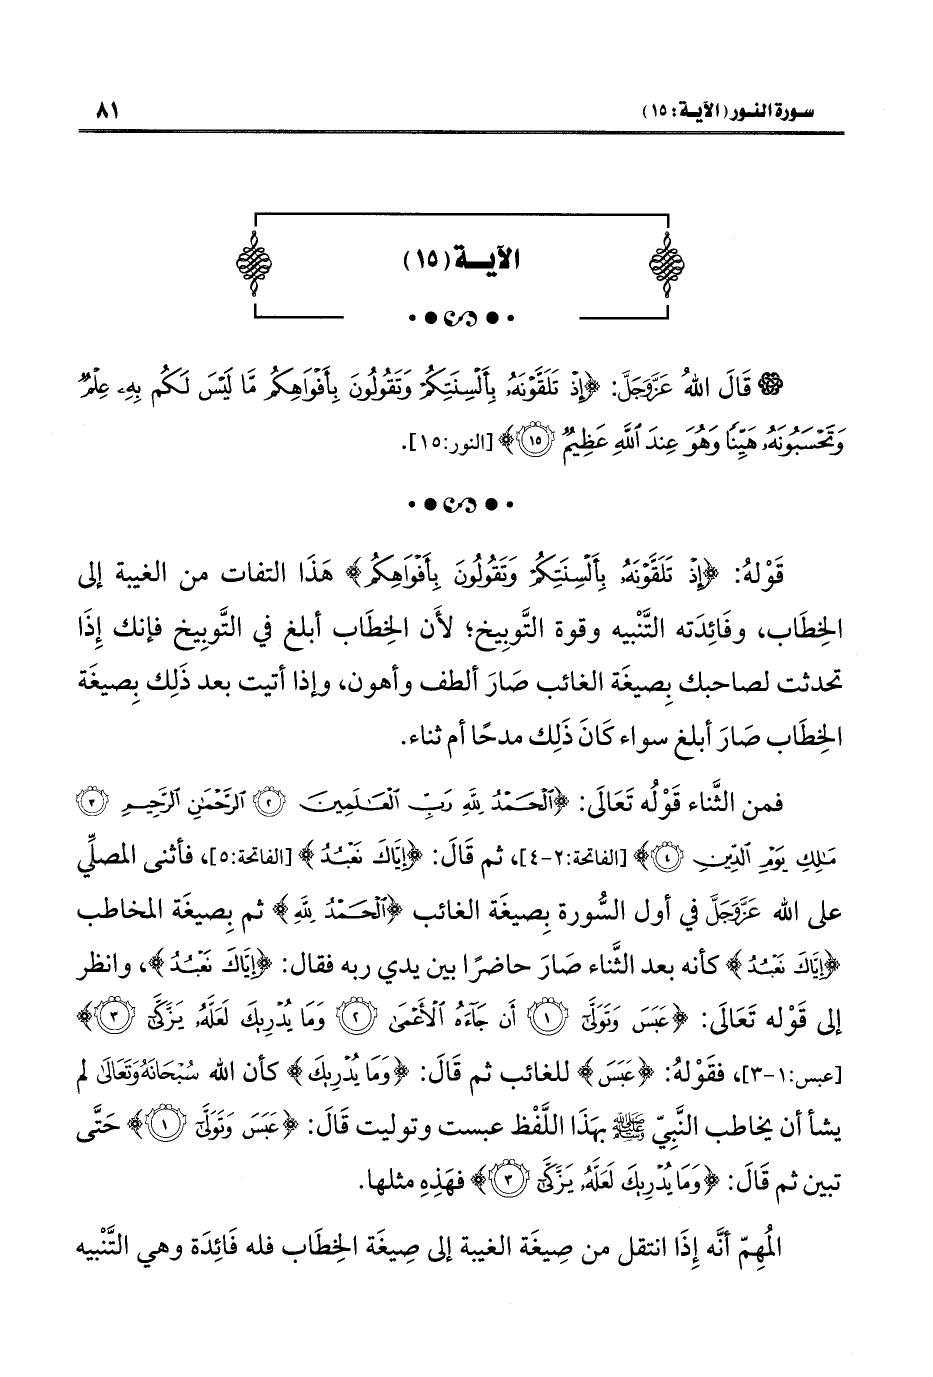 سورة النور (الآية: ١٥) ٨١
الآية (١٥)
قَالَ اللهُ عَزَّوَجَلَّ: ﴿إِذْ تَلَقَّوْنَهُۥ بِأَلْسِنَتِكُمْ وَتَقُولُونَ بِأَفْوَاهِكُم مَّا لَيْسَ لَكُم بِهِۦ عِلْمٌ
وَتَحْسَبُونَهُۥ هَيِّنًا وَهُوَ عِندَ ٱللَّهِ عَظِيمٌ ۝١٥﴾ [النور:١٥].
قَوْلهُ: ﴿إِذْ تَلَقَّوْنَهُۥ بِأَلْسِنَتِكُمْ وَتَقُولُونَ بِأَفْوَاهِكُم﴾ هَذَا التفات من الغيبة إلى
الخِطَاب، وفَائِدَته التَّنْبيه وقوة التَّوبِيخ؛ لأَن الخِطَاب أبلغ في التَّوبِيخ فإنك إِذَا
تحدثت لصاحبك بِصيغَة الغائب صَارَ ألطف وأهون، وإذا أتيت بعد ذَلِك بِصيغَة
الخِطَاب صَارَ أبلغ سواء كَانَ ذَلِك مدحًا أم ثناء.
فمن الثَّناء قَوْلُه تَعَالَى: ﴿ٱلْحَمْدُ لِلَّهِ رَبِّ ٱلْعَـٰلَمِينَ ۝٢ ٱلرَّحْمَـٰنِ ٱلرَّحِيمِ ۝٣
مَـٰلِكِ يَوْمِ ٱلدِّينِ ۝٤﴾ [الفاتحة:٢-٤]، ثم قَالَ: ﴿إِيَّاكَ نَعْبُدُ﴾ [الفاتحة:٥]، فأثنى المصلِّي
على الله عَزَّوَجَلَّ في أول السُّورة بِصيغَة الغائب ﴿ٱلْحَمْدُ لِلَّهِ﴾ ثم بِصيغَة المخاطب
﴿إِيَّاكَ نَعْبُدُ﴾ كأنه بعد الثَّناء صَارَ حاضرًا بين يدي ربه فقال: ﴿إِيَّاكَ نَعْبُدُ﴾، وانظر
إلى قَوْله تَعَالَى: ﴿عَبَسَ وَتَوَلَّىٰٓ ۝١ أَن جَآءَهُ ٱلْأَعْمَىٰ ۝٢ وَمَا يُدْرِيكَ لَعَلَّهُۥ يَزَّكَّىٰٓ ۝٣﴾
[عبس:١-٣]، فقَوْلهُ: ﴿عَبَسَ﴾ للغائب ثم قَالَ: ﴿وَمَا يُدْرِيكَ﴾ كأن الله سُبْحَانَهُوَتَعَالَىٰ لم
يشأ أن يخاطب النَّبِيّ ﷺ بهَذَا اللَّفْظ عبست وتوليت قَالَ: ﴿عَبَسَ وَتَوَلَّىٰٓ ۝١﴾ حَتَّى
تبين ثم قَالَ: ﴿وَمَا يُدْرِيكَ لَعَلَّهُۥ يَزَّكَّىٰٓ ۝٣﴾ فهَذِهِ مثلها.
المُهِمّ أنَّه إِذَا انتقل من صِيغَة الغيبة إلى صِيغَة الخِطَاب فله فَائِدَة وهي التَّنْبيه